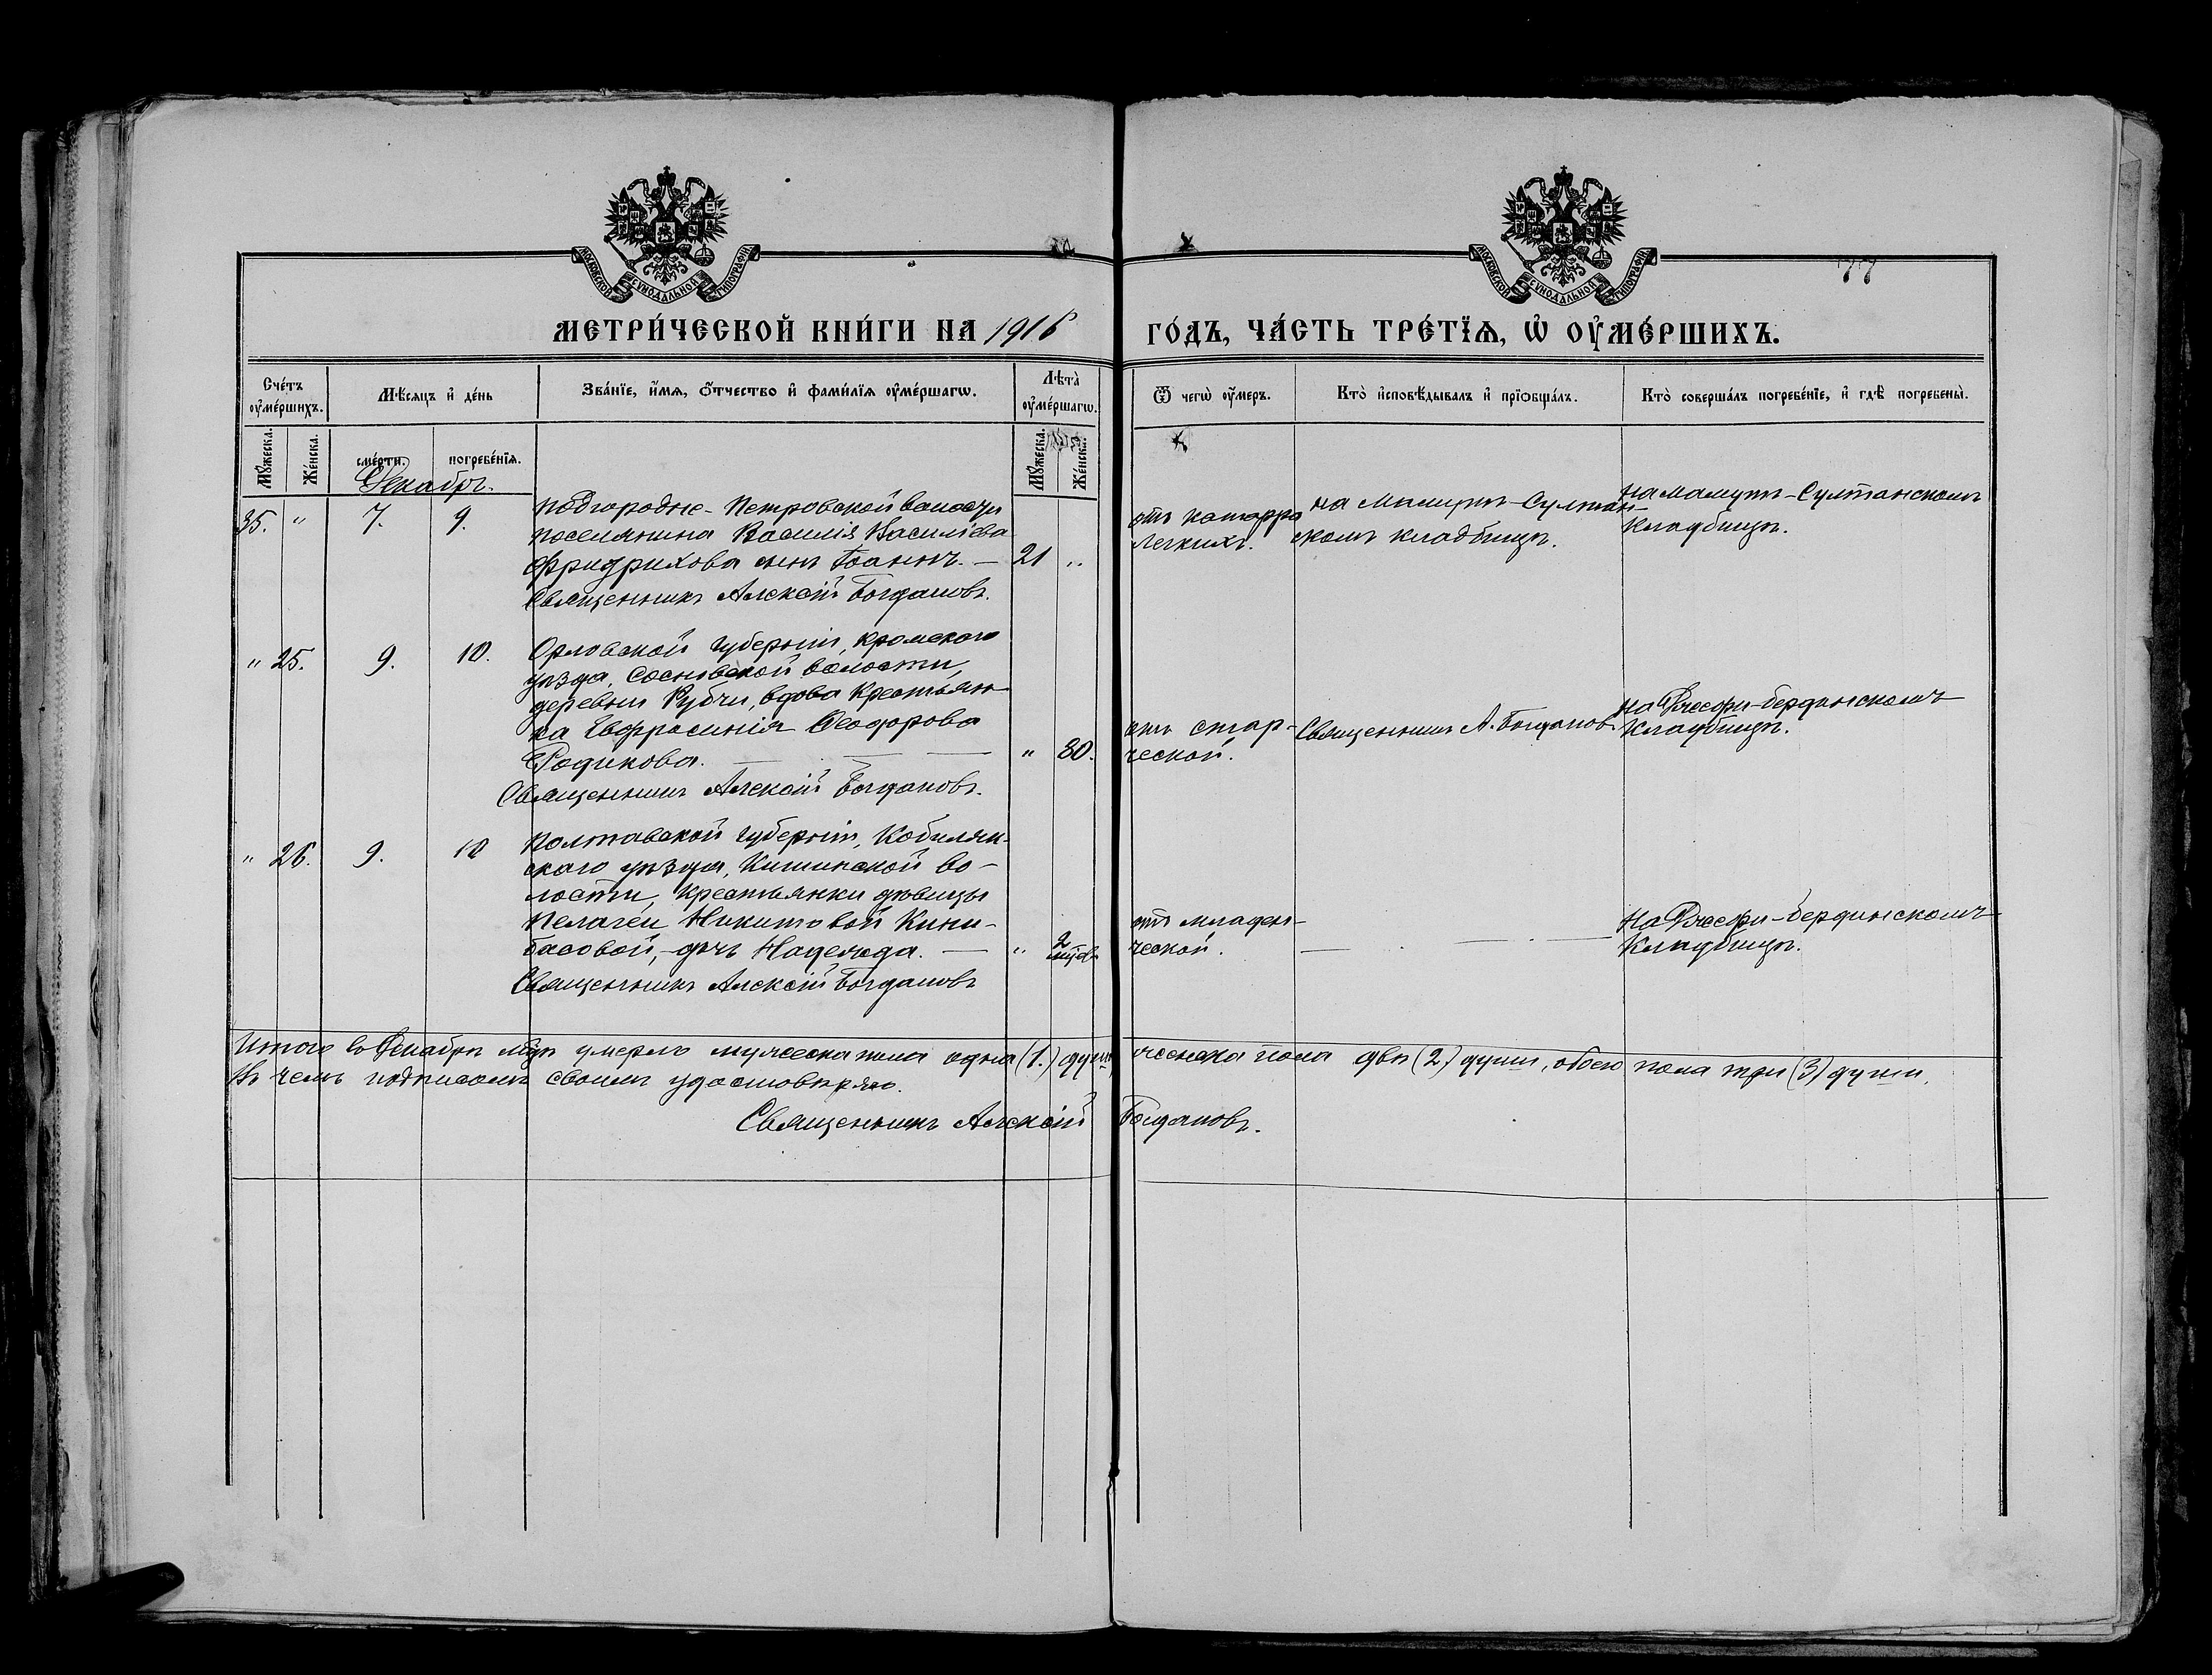 МОСКОВСКОЙ СѴНОДАЛЬНОЙ ТИПОГРАФІИ
МОСКОВСКОЙ СѴНОДАЛЬНОЙ ТИПОГРАФІИ
77
МЕТРИ́ЧЕСКОЙ КНИ́ГИ НА 1916
ГО́ДЪ, ЧА́СТЬ ТРЕ́ТЇѦ, Ѡ҆ ОУ҆МЕ́РШИХЪ.
Сче́тъ оу҆ме́ршихъ.
Мѣ́сяцъ и҆ де́нь
Зва́нїе, и҆́мѧ, ѻ҆́тчество и҆ фами́лїѧ оу҆ме́ршагѡ.
Лѣта̀ оу҆ме́ршагѡ.
Ѿ чегѡ̀ оу҆́меръ.
Кто̀ и҆сповѣ́дывалъ и҆ прїѻбща́лъ.
Кто̀ соверша́лъ погребе́нїе, и҆ гдѣ̀ погребены̀.
Мꙋ́жеска.
Же́нска.
сме́рти.
погребе́нїѧ.
Мꙋ́жеска.
Же́нска.
Декабрь.
35. " 7. 9.
Подгородне-Петровской волости
поселянина Василія Василіева
Фридрихова сынъ Іоаннъ. — 21 "
Священникъ Алексій Богдановъ.
отъ катарра
легкихъ.
на Мамутъ-Султан-
скомъ кладбищѣ.
на Мамутъ-Султанскомъ
кладбищѣ.
" 25. 9. 10.
Орловской губерніи, Кромскаго
уѣзда, Сосновской волости,
деревни Рубчи, вдова крестьян-
ка Евфросинія Ѳеодорова
Родикова. — " 80.
Священникъ Алексій Богдановъ.
отъ стар-
ческой.
Священникъ А. Богдановъ
на Джефи-бердинскомъ
кладбищѣ.
" 26. 9. 10
Полтавской губерніи, Кобеляк-
скаго уѣзда, Кишинской во-
лости, крестьянки дѣвицы
Пелагеи Никитовой Кили-
басовой, — дочь Надежда. — " 2 мѣсяц.
Священникъ Алексій Богдановъ
отъ младен-
ческой.
На Джефи-бердинскомъ
кладбищѣ.
Итого въ Декабрѣ м-цѣ умерло мужеска пола одна (1.) душа, женска пола двѣ (2) души, обоего пола три (3) души.
Въ чемъ подписомъ своимъ удостовѣряю.
Священникъ Алексій Богдановъ.